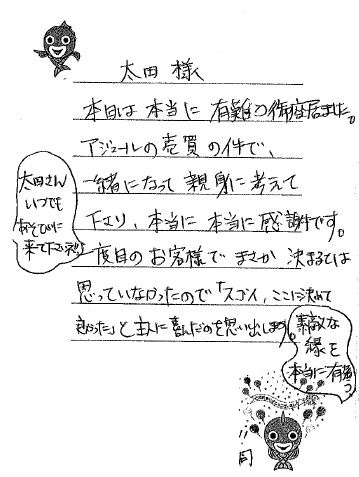 太田 様
本日は本当に 有難う御座居ました。
アジュールの売買の件で、
一緒になって 親身に考えて
下さり、本当に 本当に感謝です。
一度目のお客様で まさか 決まるとは
思っていなかったので「スゴイ、ここに決めて
良かった」と主人に喜んだのを思い出します。
太田さん
いつでも
あそびに
来て下さいネ
素敵な
縁を
本当に有難う